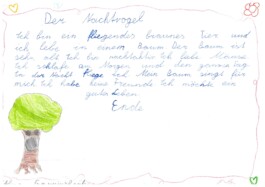 Der Nachtvogel
Ich bin ein fliegender brauner Tier und
ich lebe in einem Baum Der Baum ist
sehr alt Ich bin nachtaktiv Ich fiele Mäuse
Ich schlafe am Morgen und den ganze tag
In der Nacht fliege ich Mein Baum sorgt für
mich Ich habe keine Freunde Ich möchte ein
gutes Leben
Ende